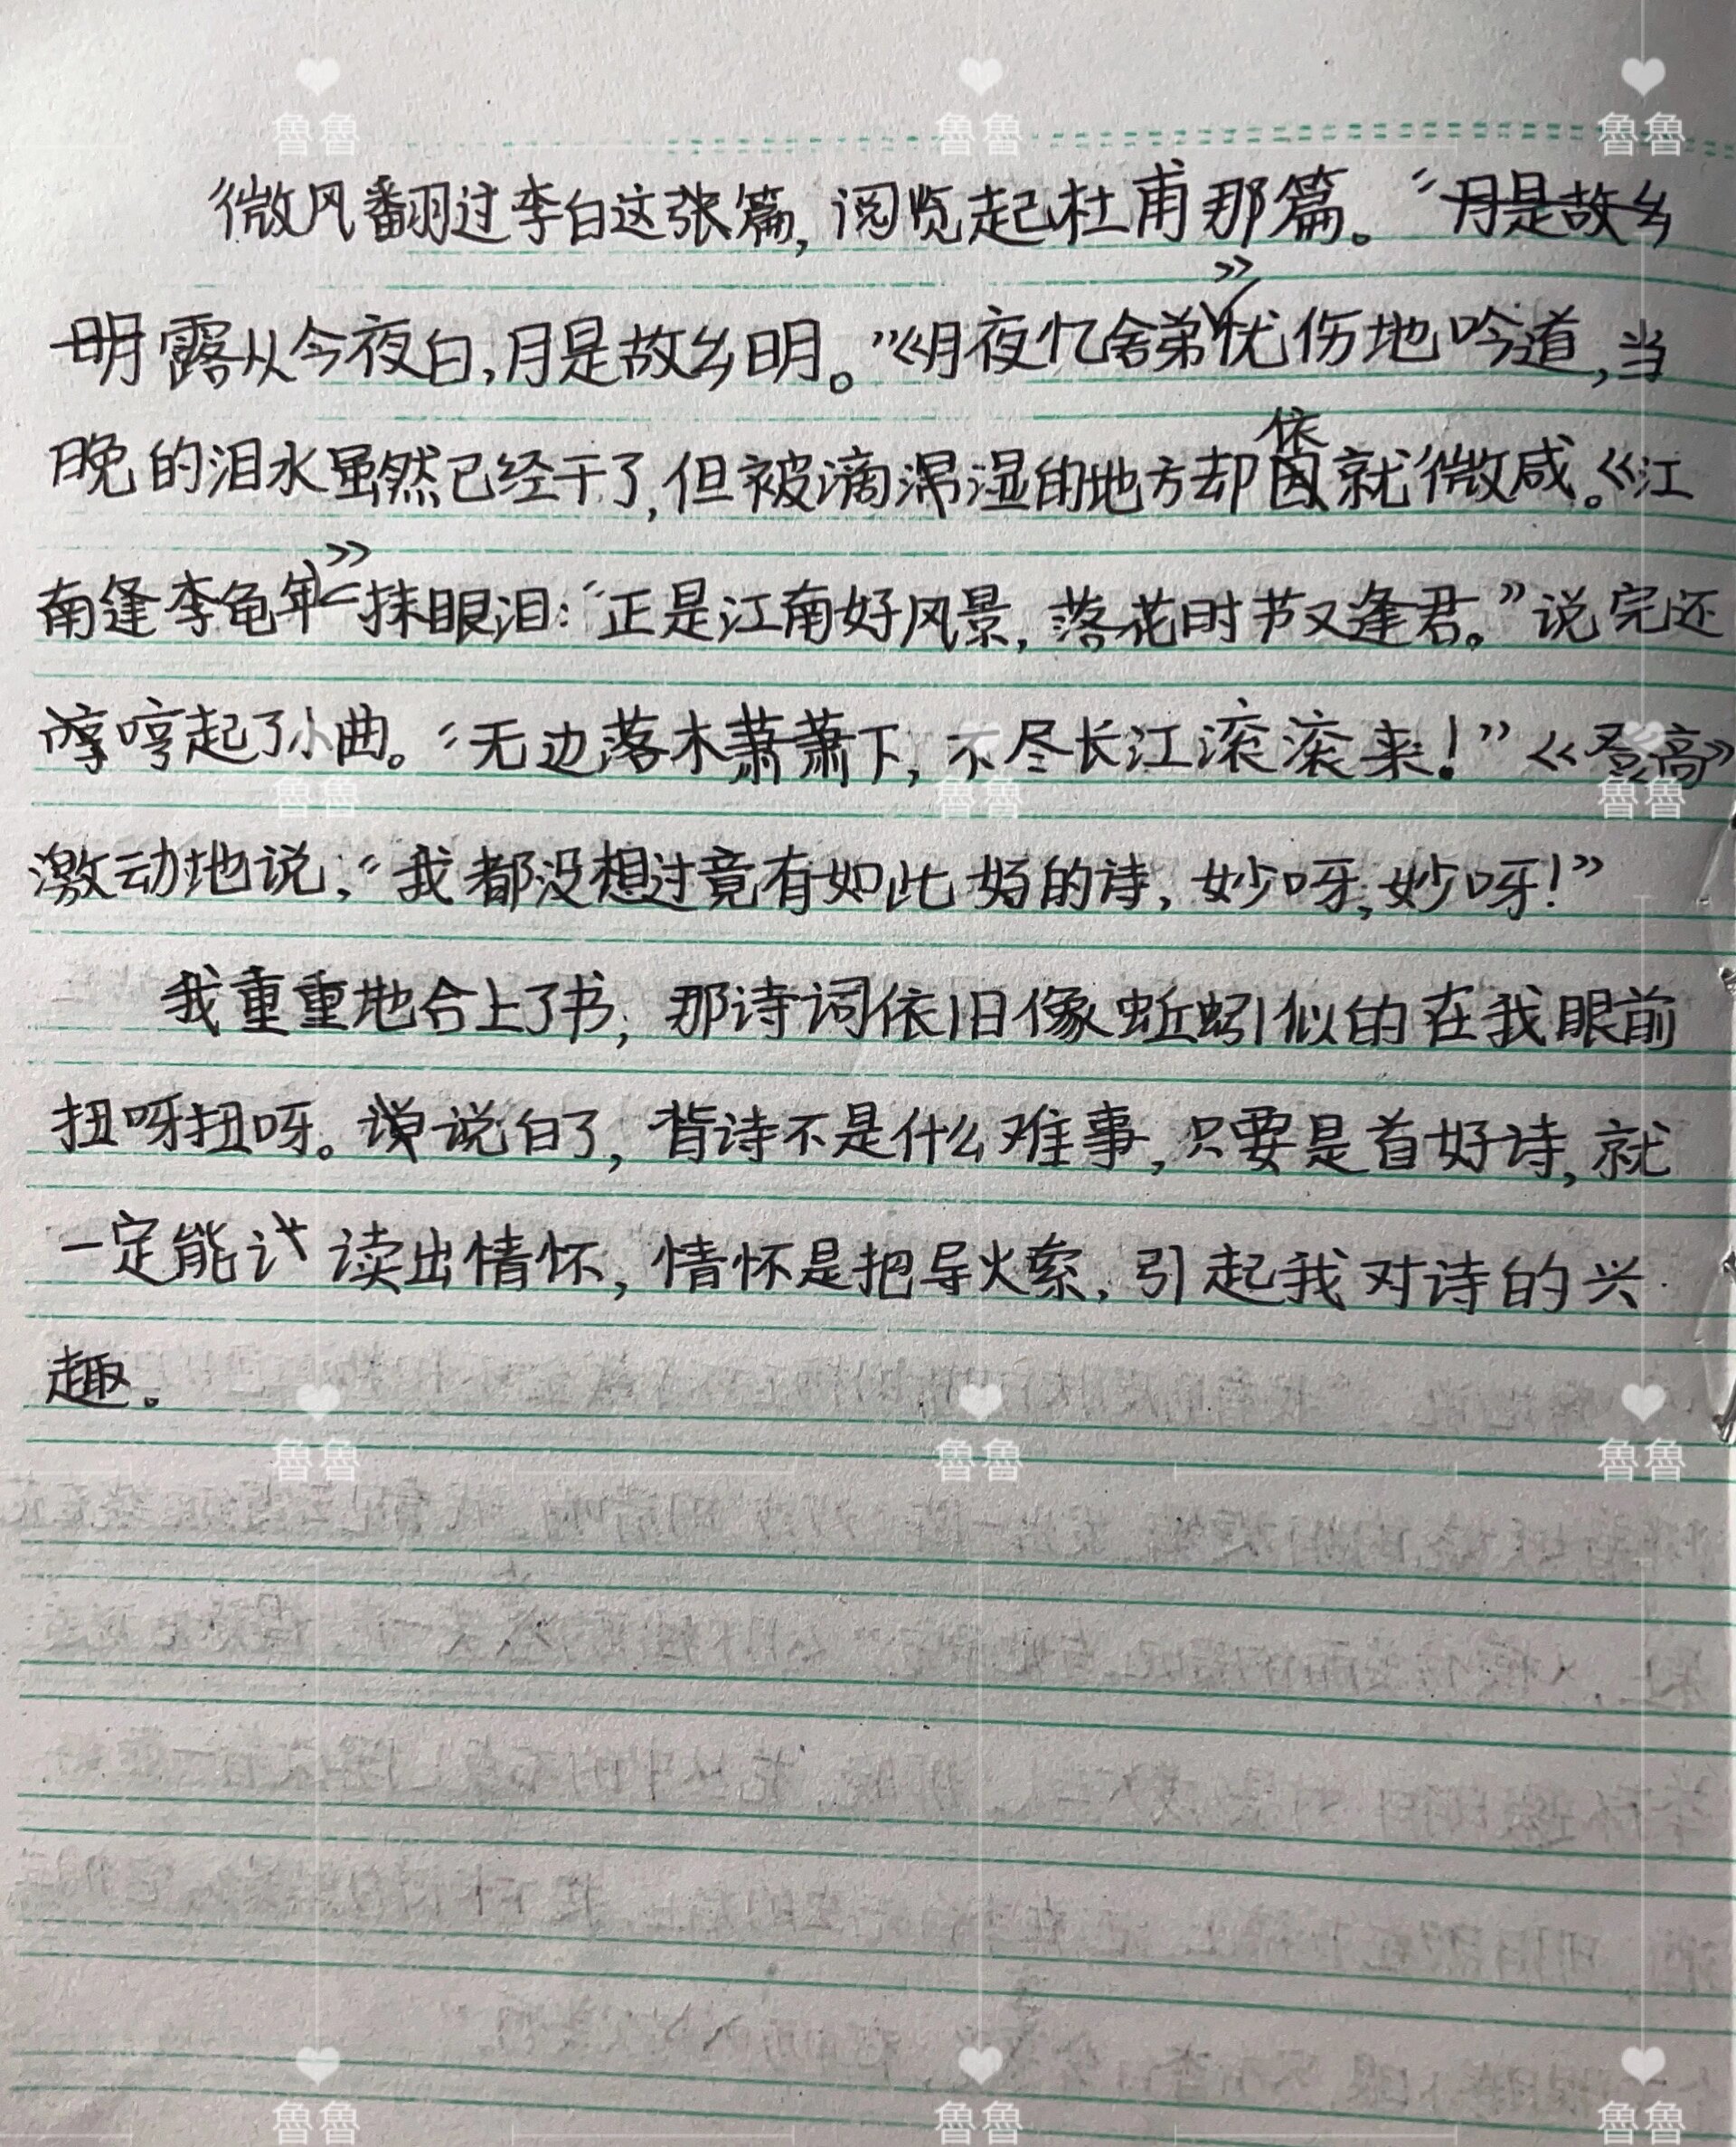 微风翻过李白这张篇，阅览起杜甫那篇。“月是故乡
明露从今夜白，月是故乡明。”《月夜忆舍弟》忧伤地吟道，当
晚的泪水虽然已经干了，但被滴湿的地方却依就微咸。《江
南逢李龟年》一抹眼泪：“正是江南好风景，落花时节又逢君。”说完还
哼起了小曲。“无边落木萧萧下，不尽长江滚滚来！”《登高》
激动地说，“我都没想过竟有如此好的诗，妙呀，妙呀！”
我重重地合上了书，那诗词依旧像蚯蚓似的在我眼前
扭呀扭呀。说白了，背诗不是什么难事，只要是首好诗，就
一定能读出情怀，情怀是把导火索，引起我对诗的兴
趣。
魯魯
魯魯
魯魯
魯魯
魯魯
魯魯
魯魯
魯魯
魯魯
魯魯
魯魯
魯魯